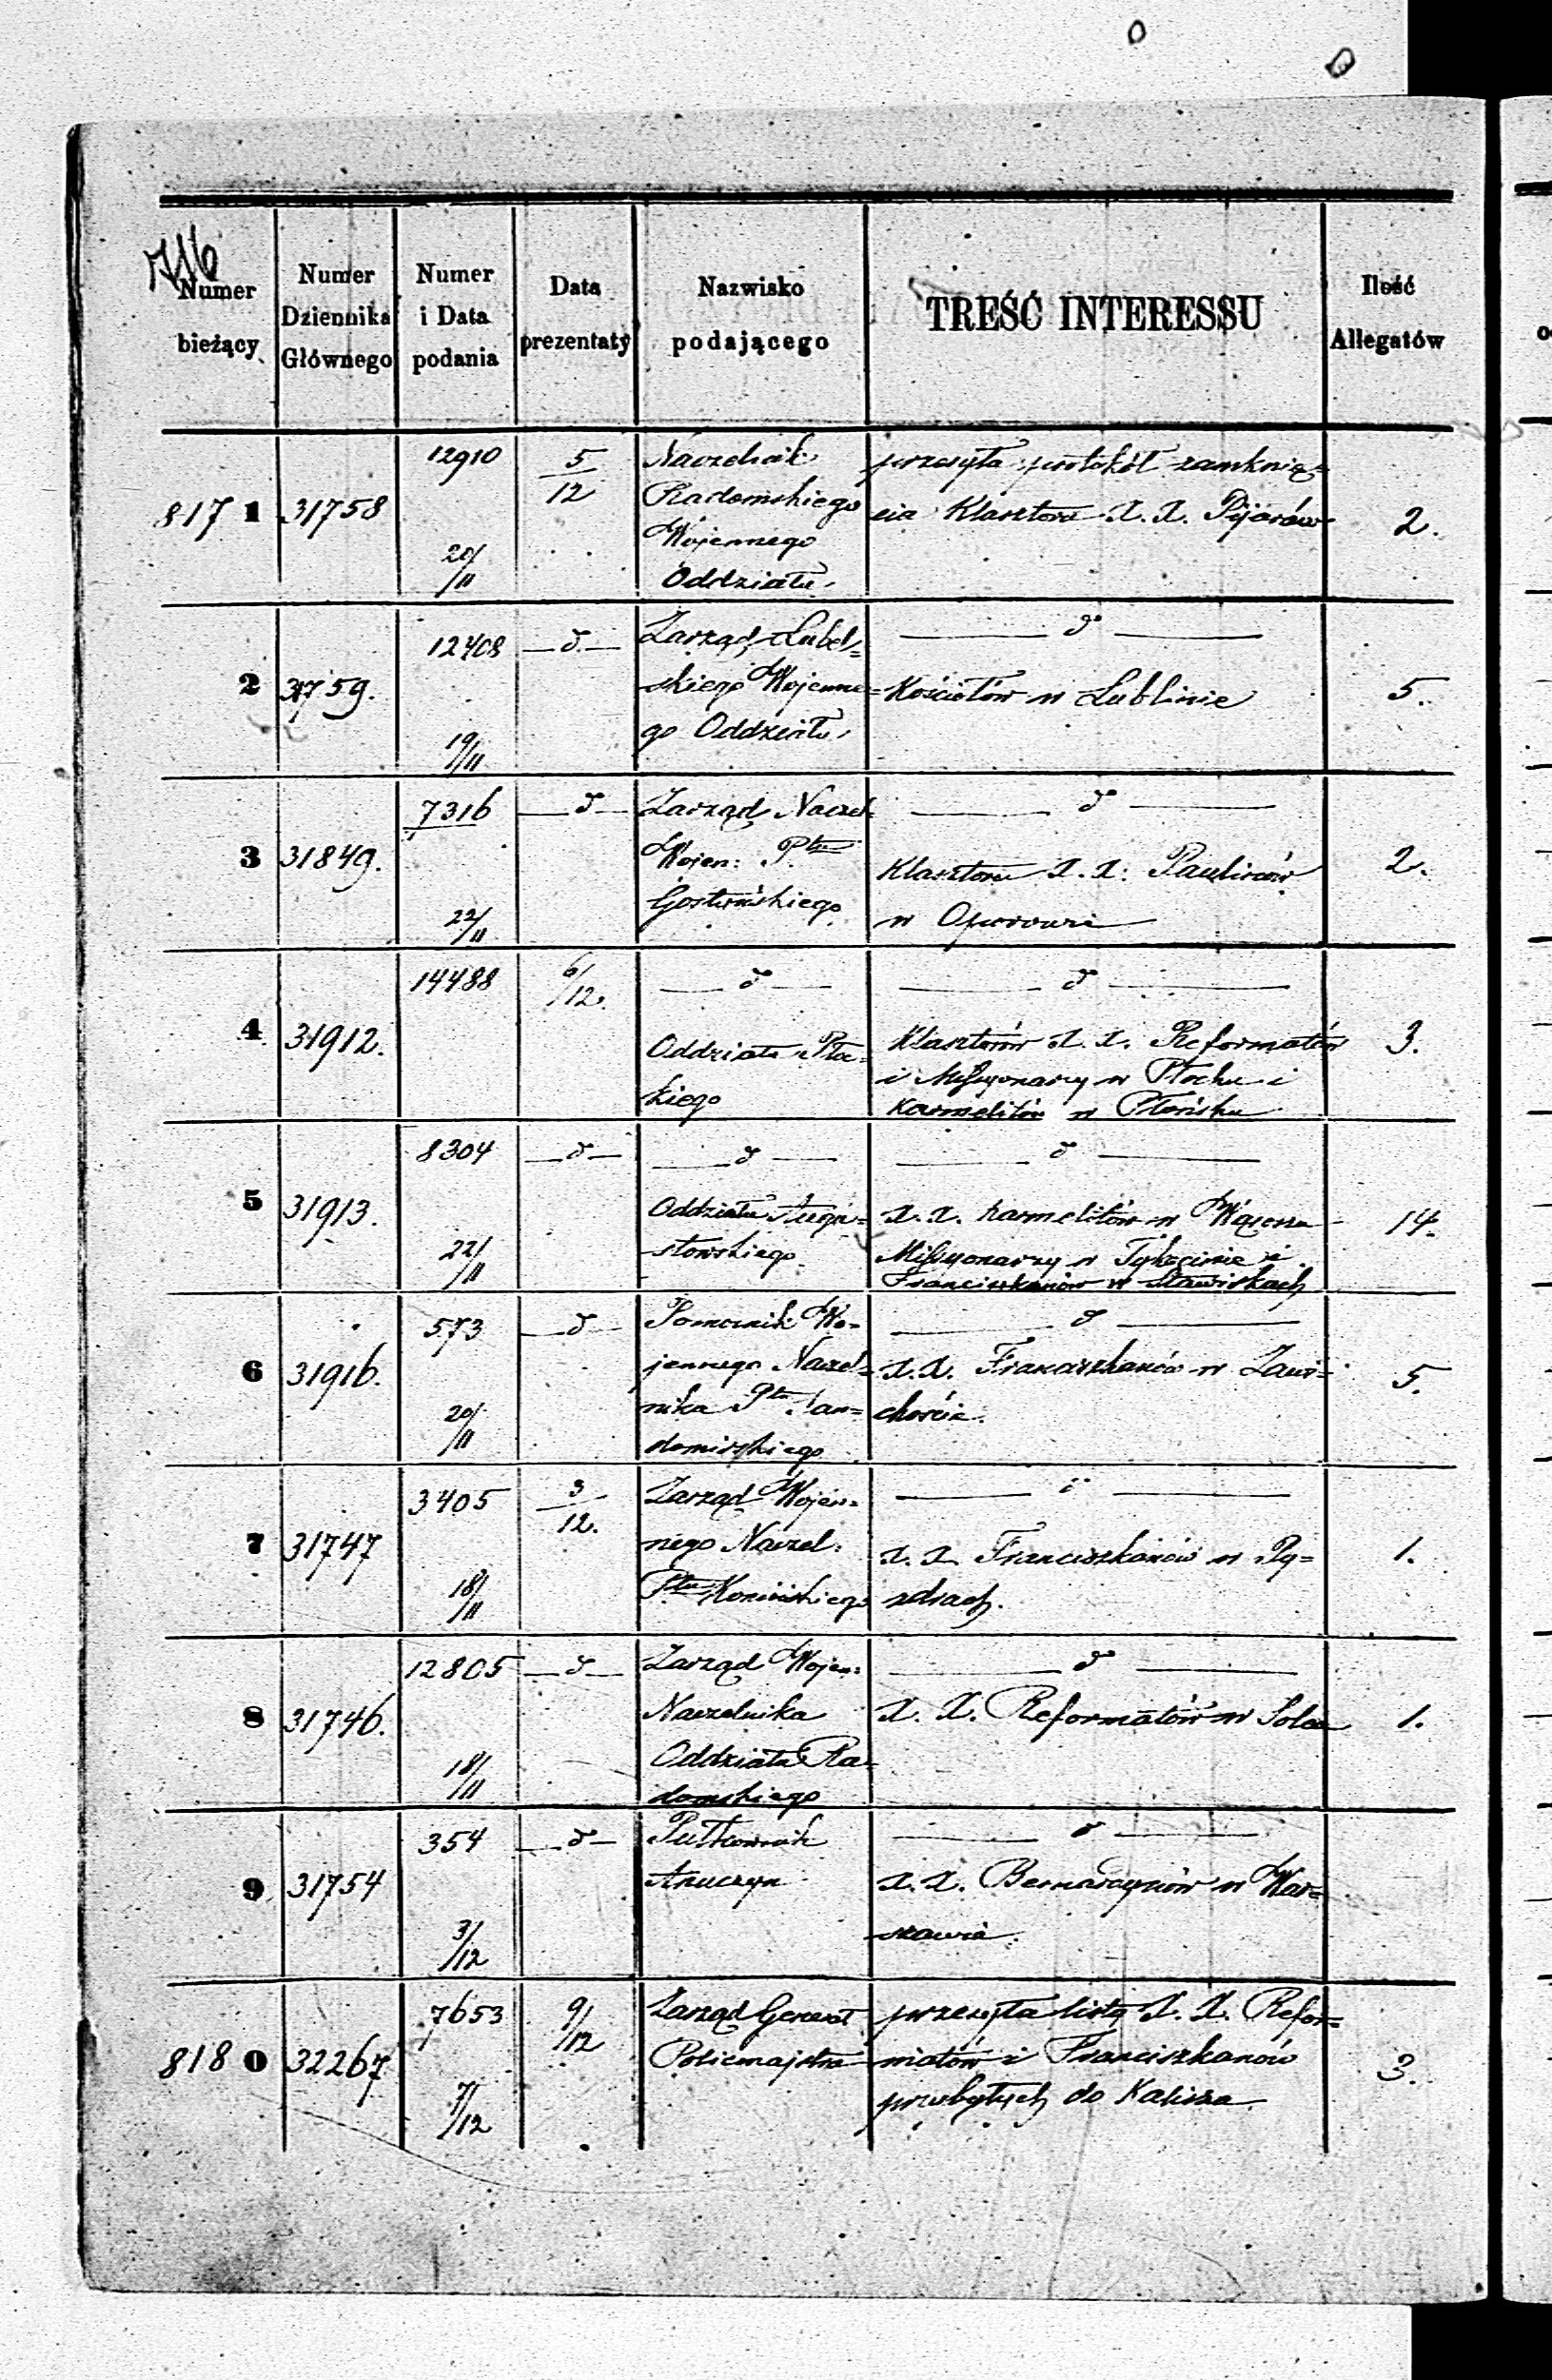 716
Numer bieżący
Numer Dziennika Głównego
Numer i Data podania
Data prezentaty
Nazwisko podającego
TREŚĆ INTERESSU
Ilość Allegatów
8171 31758 12910 20/11 5/12
Naczelnik
Radomskiego
Wojennego
Oddziału
przesyła protokół zamknię=
cia Klasztoru X. X. Pijarów
2.
2 31759. 12408 19/11 —d—
Zarząd Lubel=
skiego Wojenne=
go Oddziału
— d° —
Kościołów w Lublinie
5.
3 31849. 7316 22/11 —d—
Zarząd Naczel:
Wojen: Ptu
Gostyńskiego
— d —
Klasztoru X. X. Paulinów
w Oporowie
2.
4 31912. 14488 6/12.
— d —
Oddziału Płoc=
kiego
— d —
Klasztorów X. X. Reformatów
i Missyonarzy w Płocku i
Karmelitów w Płońsku
3.
5 31913. 8304 22/11 —d—
— d —
Oddziału Augu=
stowskiego
— d —
X. X. Karmelitów w Wąsoszu
Missyonarzy w Tykocinie i
Franciszkanów w Stawiskach
14.
6 31916. 573 20/11 —d—
Pomocnik Wo=
jennego Naczel=
nika Ptu San=
domirskiego
— d —
X. X. Franciszkanów w Zawi=
choście.
5.
7 31747 3405 18/11 3/12.
Zarząd Wojen=
nego Naczel:
Ptu Konińskiego
— d —
X. X. Franciszkanów w Py=
zdrach.
1.
8 31746. 12805 18/11 —d—
Zarząd Wojen:
Naczelnika
Oddziału Ra=
domskiego
— d —
X. X. Reformatów w Solcu
1.
9 31754 354 3/12 —d—
Pułkownik
Anuczyn
— d —
X. X. Bernardynów w War=
szawie.
8180 32267 7653 7/12 9/12
Zarząd Generał
Policmajstra
przesyła listę X. X. Refor=
matów i Franciszkanów
przybyłych do Kalisza.
3.